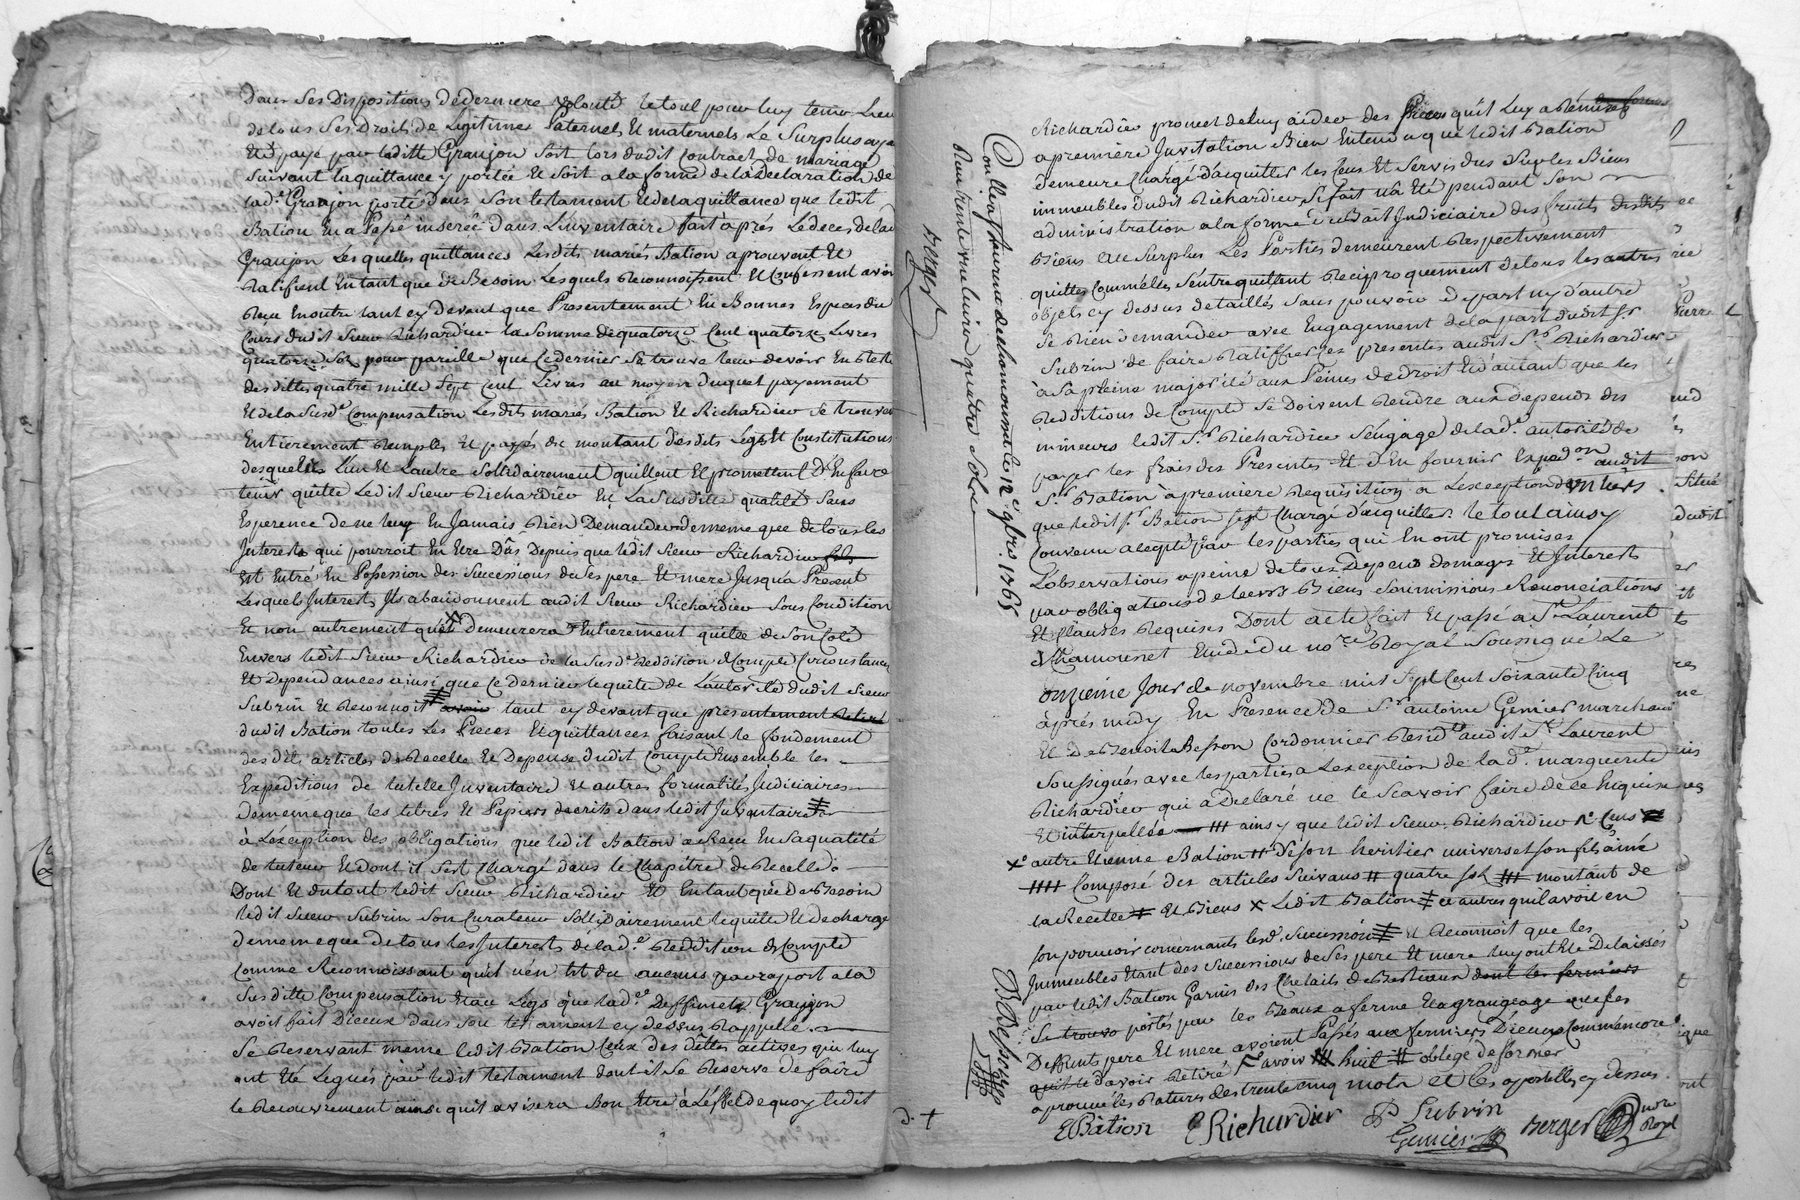 dans ses Dispositions de derniere volonté le tout pour luy tenir Lieu
de tous ses Droits de Legitimes Paternels Et maternels Le Surplus
Eté payé par laditte Granjon soit lors dudit Contract de mariage
suivant la quittance y portée Et soit a la forme de la Declaration de
lad.e Granjon porté dans son testament Et de la quittance que ledit
Bation En a Passé inserée dans L'inventaire fait aprés Le deces de lad
Granjon Lesquelles quittances Lesdits mariés Bation aprouvent Et
Ratifient En tant que de Besoin Lesquels Reconnoissent Et Confessent avoir
Reçu En outre tant cy devant que Presentement En Bonnes Especes du
Cours dudit sieur Richardier la somme de quatorze Cent quatorze Livres
quatorze sols pour pareille que ce dernier se trouve leur devoir En Reste
des dittes quatre mille Sept Cent Livres au moyen duquel payement
Et de la susd.e Compensation Lesdits mariés Bation Et Richardier se trouvent
Entierement Remplis Et payés du montant desdits Legs Et Constitutions
desquelles L'un Et L'autre sollidairement quittent Et promettent D'En faire
tenir quitte Ledit sieur Richardier En La susditte qualité sans
Esperence de ne luy En Jamais Rien Demander de meme que de tous les
Interests qui pourroit En Etre Dûs Depuis que ledit sieur Richardier fils
Est Entré En Possession des successions de ses pere Et mere Jusqu'a Present
Lesquels Interests Ils abandonnent audit sieur Richardier sous Condition
Et non autrement qu'il demeurera Entierement quitte de son Coté
Envers ledit sieur Richardier de la susd.e Reddition de Compte Circonstances
Et Dependances ainsi que ce dernier le quitte de L'autorité dudit sieur
Subrin Et Reconnoit avoir tant cy devant que presentement Retiré
dudit Bation toutes Les Pieces Et quittances faisant le fondement
des dits articles de Recette Et Depense dudit Compte Ensemble les
Expéditions de tutelle Inventaire Et autres formalités Judiciaires
de meme que les titres Et Papiers decrits dans ledit Inventaire
à L'éxception des obligations que ledit Bation a Reçu En sa qualité
de tuteur Et dont il s'est Chargé dans le Chapitre de Recette
Dont Et du tout ledit sieur Richardier Et En tant que de Besoin
ledit sieur Subrin son Curateur sollidairement le quitte Et decharge
de meme que de tous les Interests de lad.e Reddition de Compte
Comme Reconnoissant qu'il n'en Est du aucuns par raport a la
susditte Compensation Et au Legs que lad.e Deffunete Granjon
avoit fait D'iceux dans son testament cy dessus Rappellé.
Se Reservant meme ledit Bation Ceux des dettes actives qui luy
ont Eté Legués par ledit testament dont il se Reserve de faire
le Recouvrement ainsi qu'il avisera Bon Etre à L'Effet de quoy ledit
Berger
Controllé a St Laurent de Chamousset le 12e 9bre. 1765
Reçu trente une livre quatre sols
BDesparys
Richardier promet de luy aider des Pieces qu'il Luy a Remises
a première Invitation Bien Entendu que ledit Bation
demeure Chargé d'acquitter les Cens Et servis dus sur les Biens
immeubles dudit Richardier si fait n'a Eté pendant son
administration a la forme du Bail Judiciaire des fruits desdits
Biens au surplus Les Parties demeurent Respectivement
quittes Comm'elles s'entrequittent Reciproquement de tous les autres
objets cy dessus detaillés sans pouvoir de part ny d'autre
se Rien demander avec Engagement de la part dudit sr
Subrin de faire Ratiffier ces presentes audit Sr. Richardier
à sa pleine majorité aux Peines de droit Et d'autant que les
Redditions de Compte se Doivent Rendre aux depends des
mineurs ledit Sr. Richardier s'engage de lad.e autorité de
payer les frais des Presentes Et d'En fournir Expedon audit
Sr. Bation à premiere Requisition a L'exception d'un tiers
que ledit Sr. Bation s'est Chargé d'aiquitter. le tout ainsy
Convenu accepté par les parties qui En ont promises
L'observations a peine de tous Depens domages Et Interests
par obligations de leurs Biens soumissions Renonciations
Et Clauses Requises Dont acte fait Et passé a St. Laurent
de Chamousset Etude du no.re Royal soussigné Le
onzieme Jour de novembre mil Sept Cent soixante Cinq
aprés midy En Presence de Sr. antoine Genier marchand
Et de Benoit Besson Cordonnier Resid.ts audit St. Laurent
soussignés avec les parties a L'exception de la d.e marguerite
Richardier qui a declaré ne le scavoir faire de ce Enquise
Et interpellée ainsy que ledit sieur Richardier
autre Etienne Bation de son heritier universel son fils ainé
Composé des articles suivans quatre sols montant de
la Recette Et Biens Ledit Bation et autres qu'il avoit en
son pouvoir concernants lesd. succession Et Reconnoit que les
Immeubles Etant des successions de ses pere Et mere luy ont Eté Delaissés
par ledit Bation Garnis des Chetails de Bestiaux dont les fermiers
se trouve portés par les Beaux a ferme Et a grangeage que ses
Deffunts pere Et mere avoient Passés aux fermiers D'iceux Comm'encore
d'avoir Retiré avoir huit obligé de former
aprouvé les Ratures des trente cinq mots et les apostilles cy dessus.
EBâtion   ERichardier   P Subrin
Genier   Berger no.re Royal